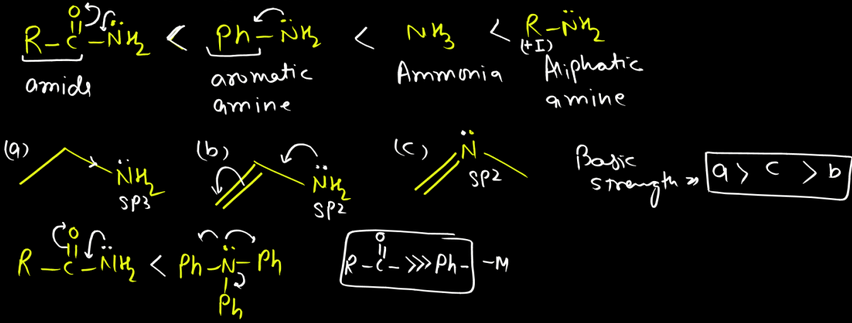 R-C(=O)-N̈H₂ < Ph-N̈H₂ < NH₃ < R-N̈H₂
(+I)
amide aromatic amine Ammonia Aliphatic amine
(a) N̈H₂ SP3 (b) N̈H₂ SP2 (c) N̈ SP2 Basic strength » a > c > b
R-C(=O)-N̈H₂ < Ph-N̈(Ph)-Ph R-C(=O)- >>> Ph- -M